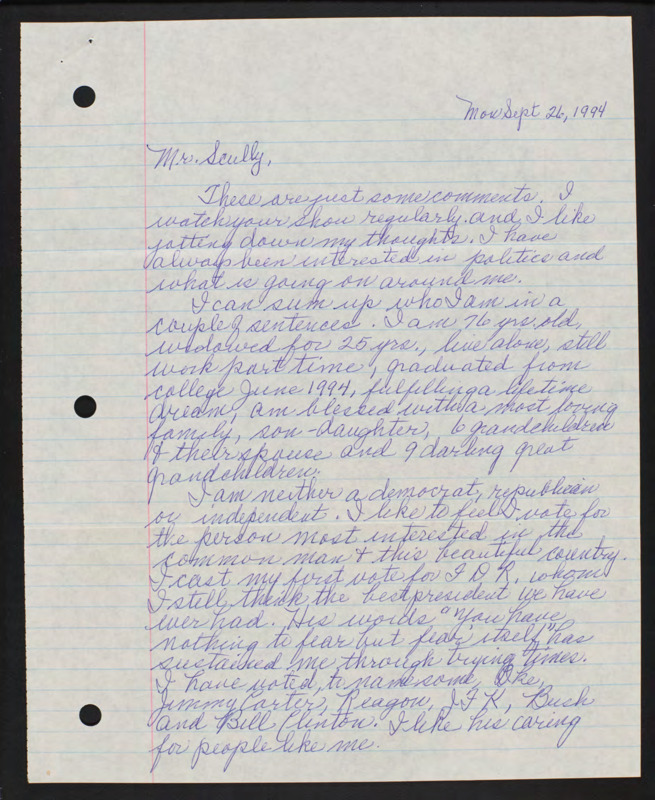 Mon Sept 26, 1994
Mr. Scully,
These are just some comments. I
watch your show regularly and I like
jotting down my thoughts. I have
always been interested in politics and
what is going on around me.
I can sum up who I am in a
couple of sentences. I am 76 yrs old,
widowed for 25 yrs., live alone, still
work part time, graduated from
college June 1994, fulfilling a lifetime
dream, am blessed with a most loving
family, son-daughter, 6 grandchildren
& their spouse and 9 darling great
grandchildren.
I am neither a democrat, republican
or independent. I like to feel I vote for
the person most interested in the
common man & this beautiful country.
I cast my first vote for F D R, whom
I still think the best president we have
ever had. His words "You have
nothing to fear but fear itself" has
sustained me through trying times.
I have voted, to name some, Ike,
Jimmy Carter, Reagon, JFK, Bush
and Bill Clinton. I like his caring
for people like me.